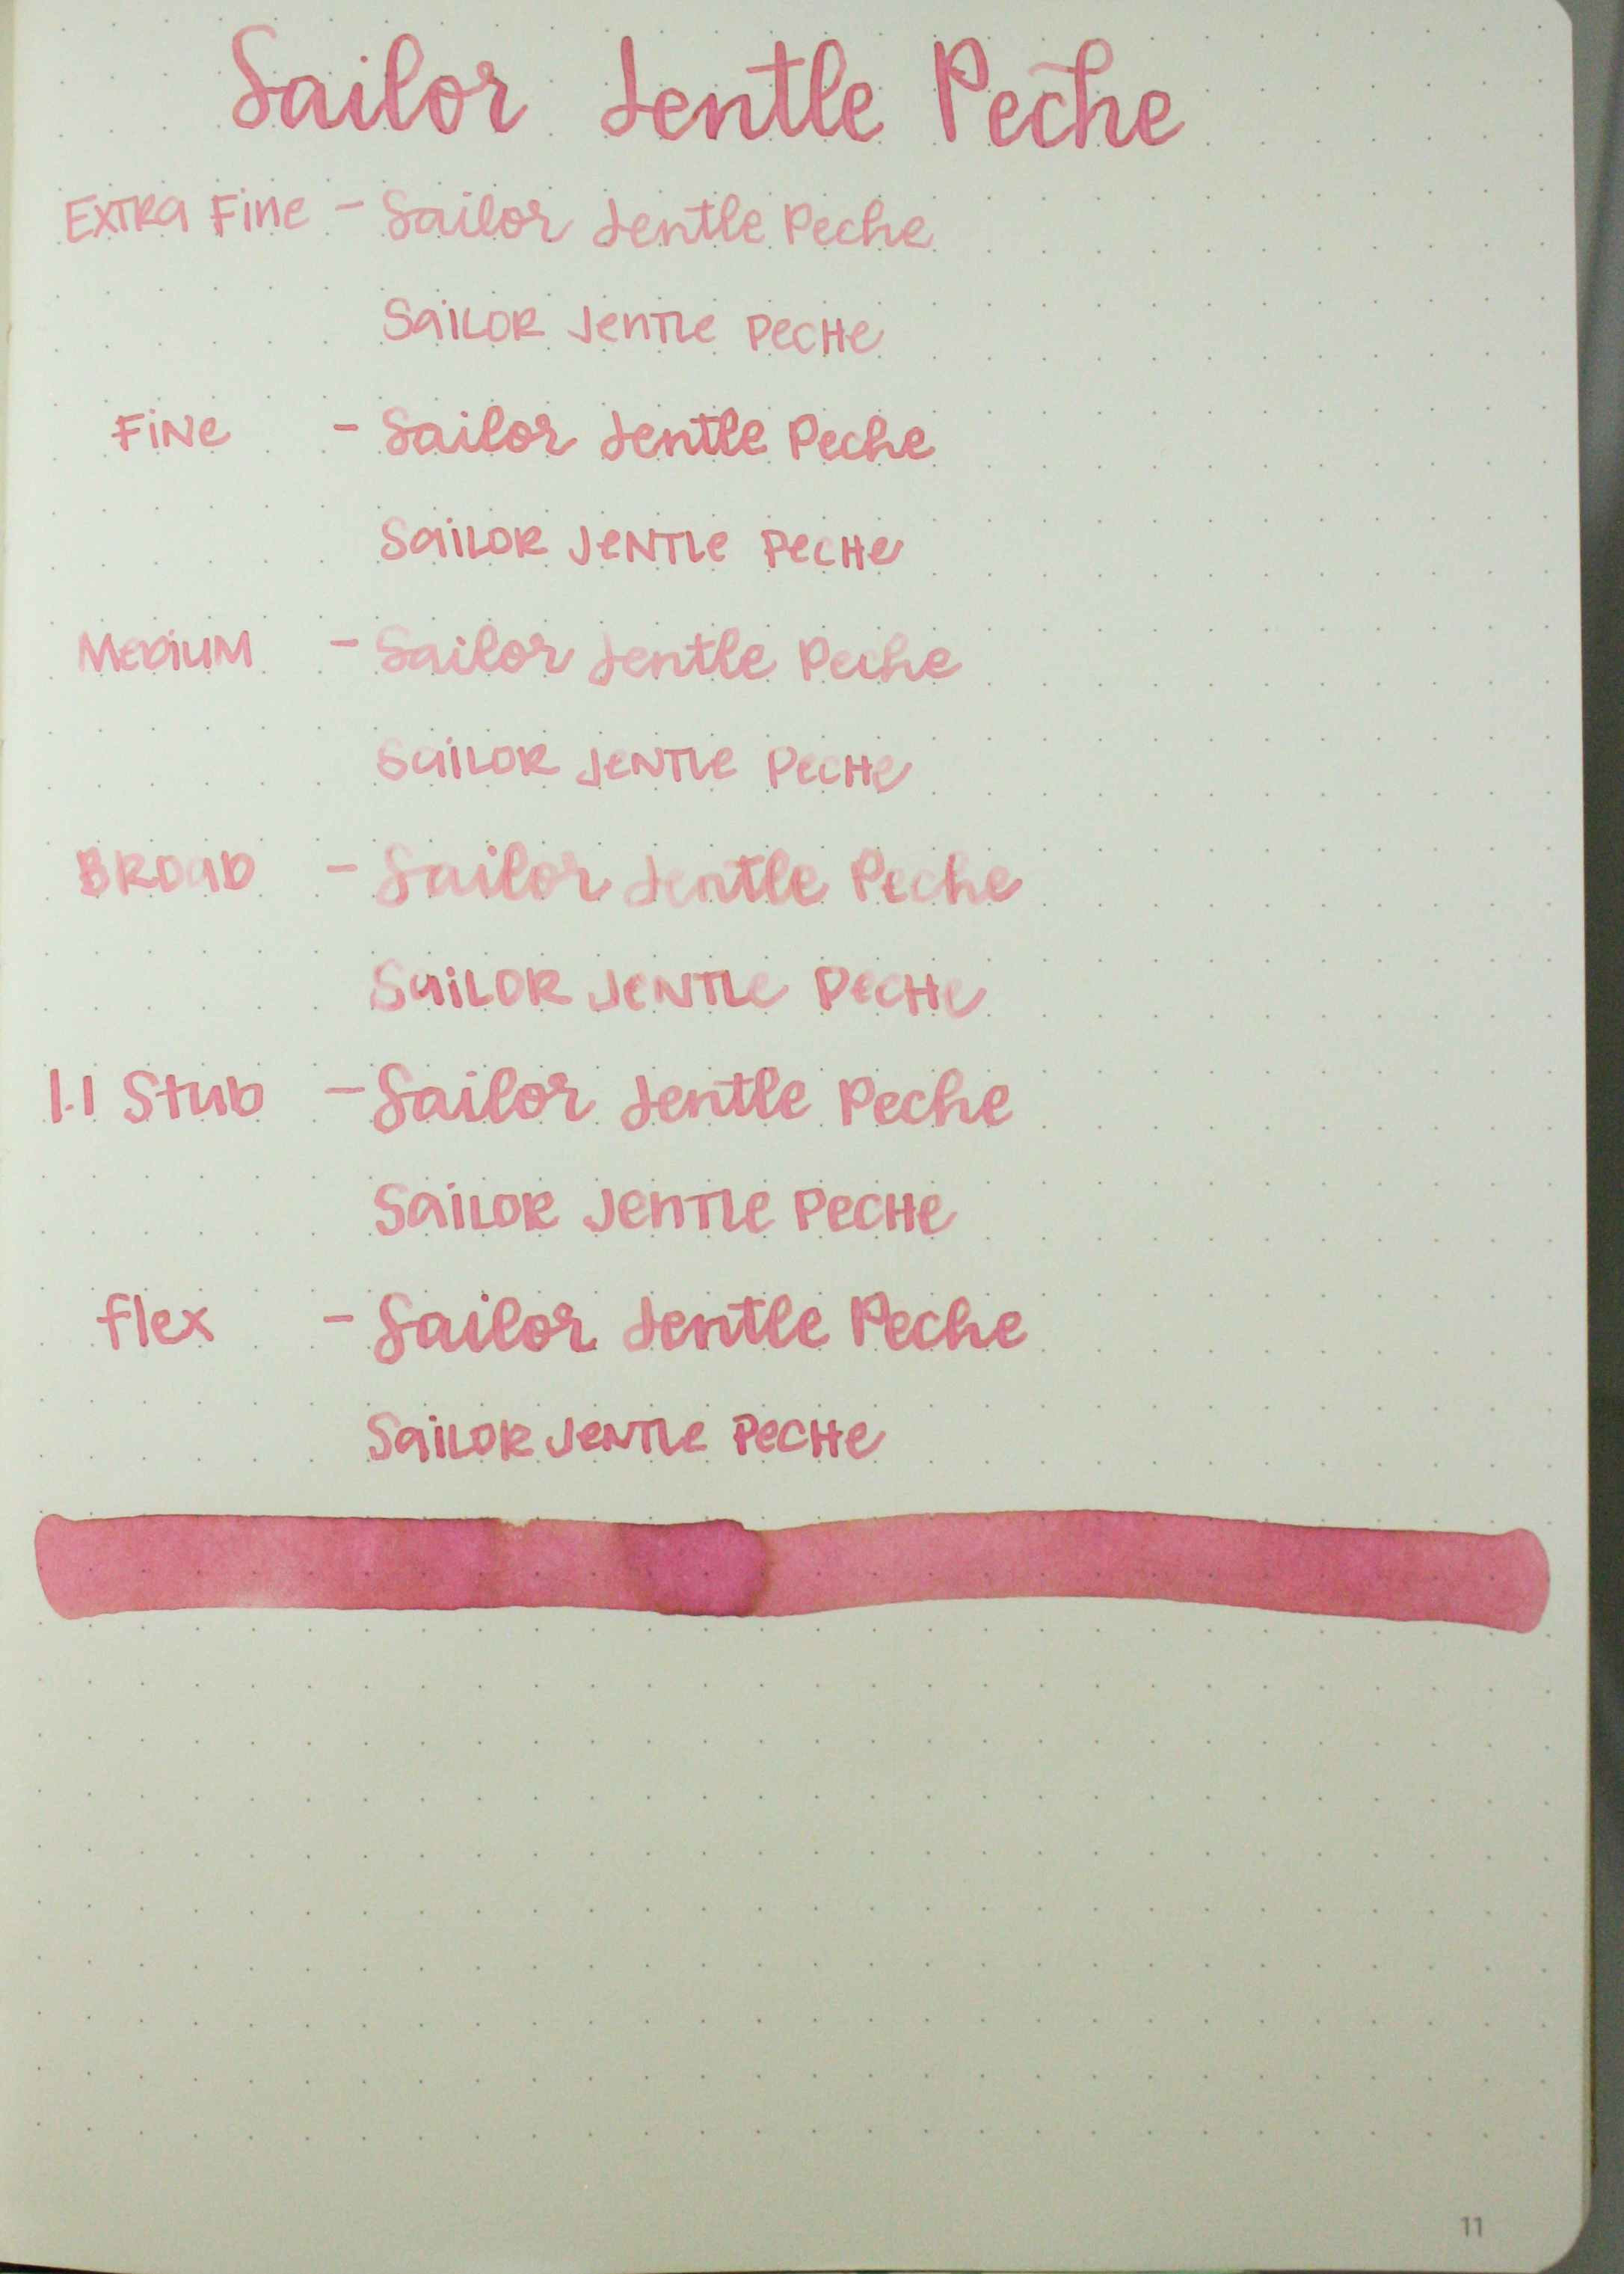 Sailor Jentle Peche
Extra Fine - Sailor Jentle Peche
Sailor Jentle Peche
Fine - Sailor Jentle Peche
Sailor Jentle Peche
Medium - Sailor Jentle Peche
Sailor Jentle Peche
Broad - Sailor Jentle Peche
Sailor Jentle Peche
1.1 Stub - Sailor Jentle Peche
Sailor Jentle Peche
flex - Sailor Jentle Peche
Sailor Jentle Peche
11